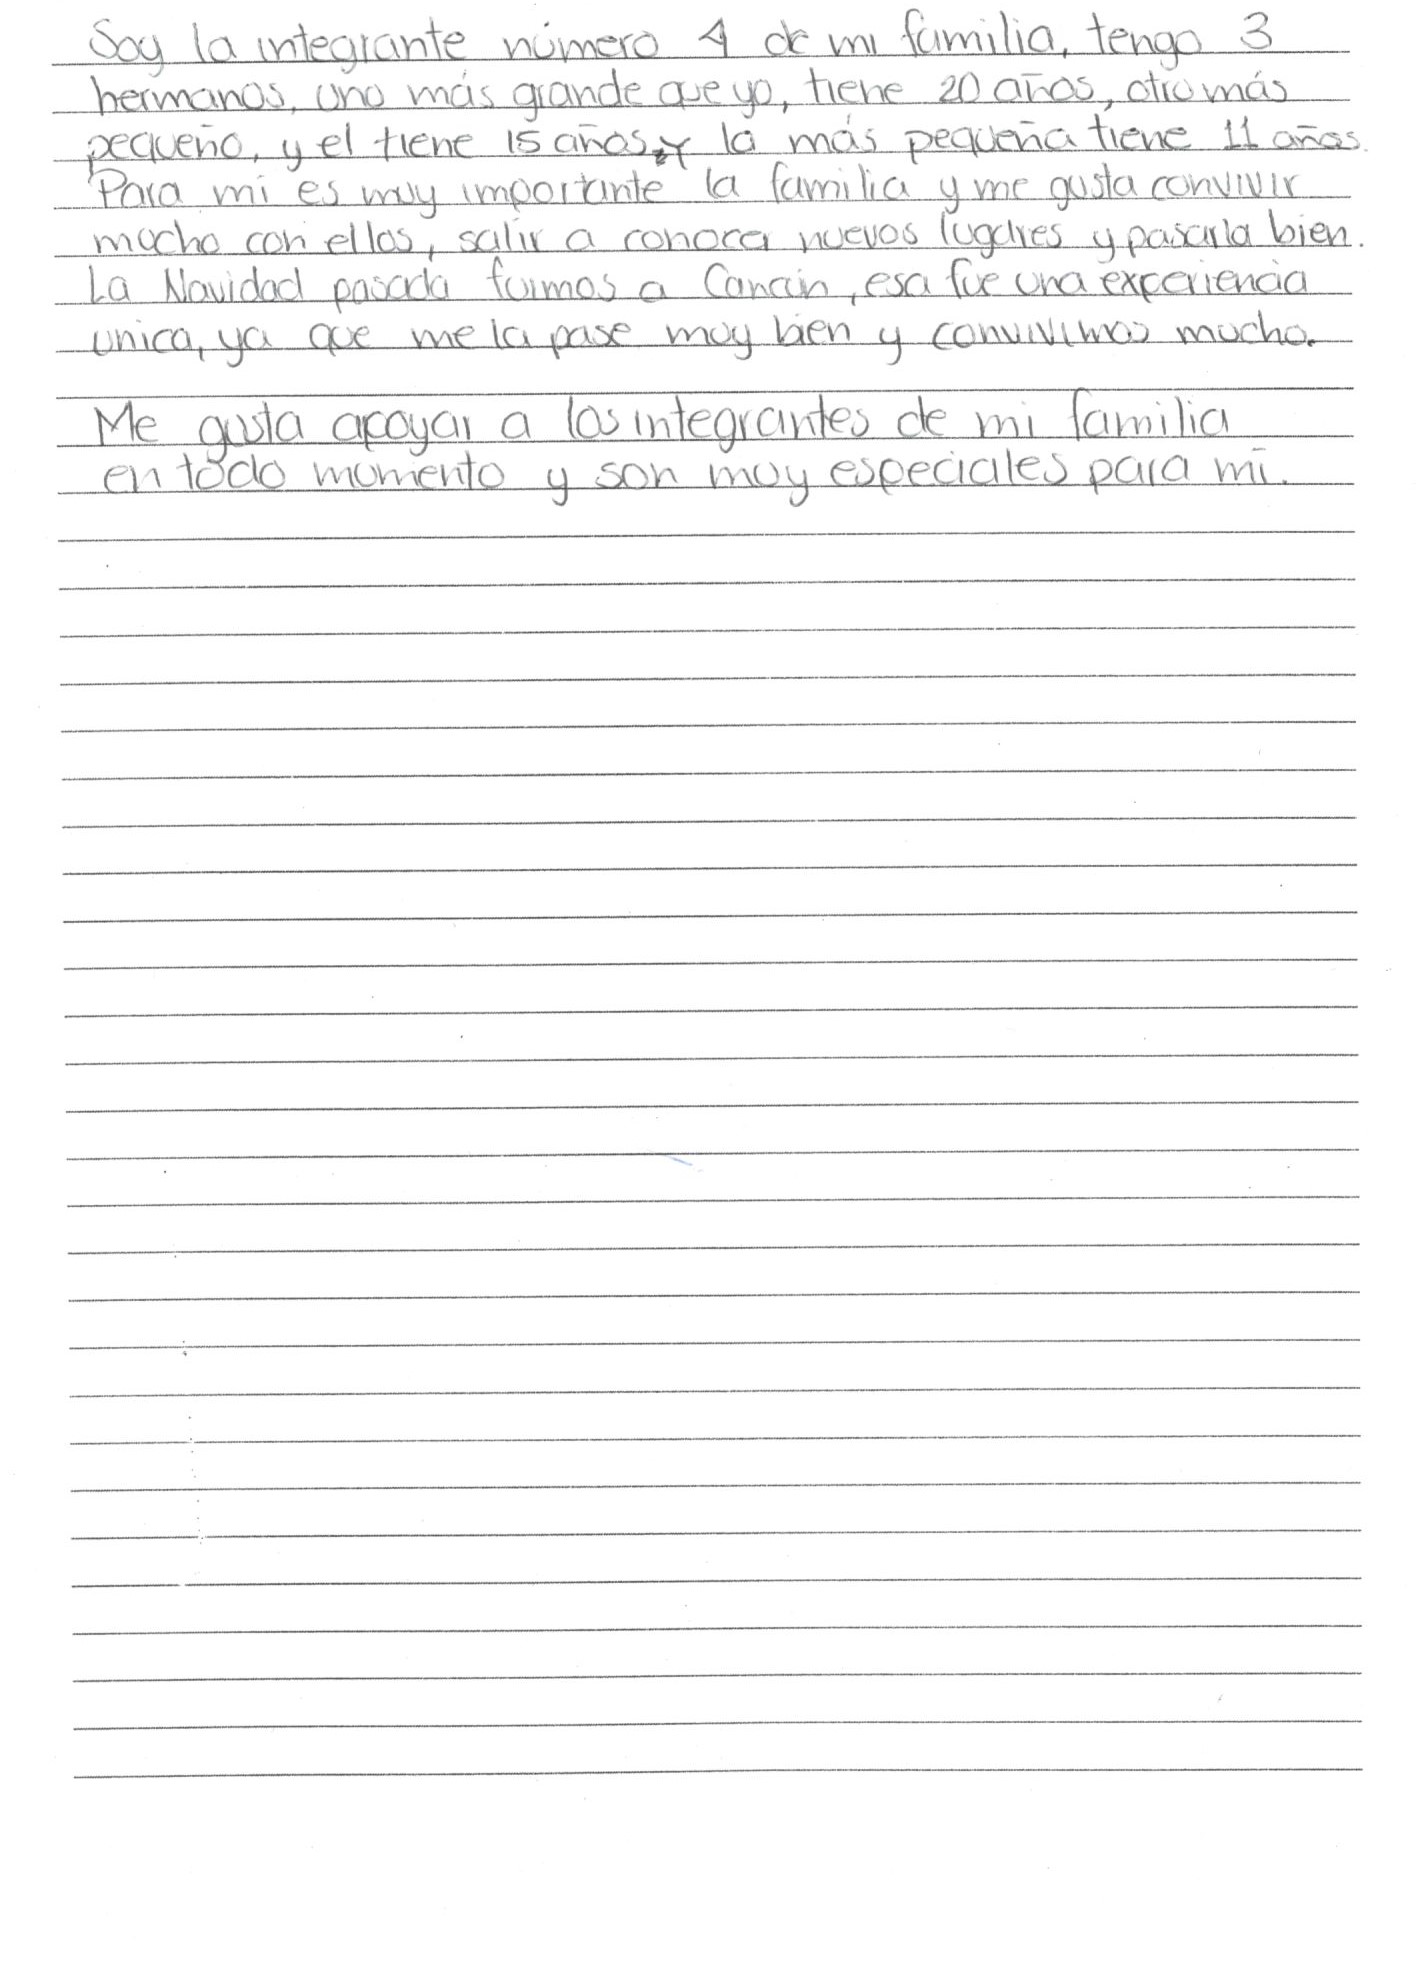 Soy la integrante número 4 de mi familia, tengo 3
hermanos, uno más grande que yo, tiene 20 años, otro más
pequeño, y el tiene 15 años, y la más pequeña tiene 11 años.
Para mi es muy importante la familia y me gusta convivir
mucho con ellos, salir a conocer nuevos lugares y pasarla bien.
La Navidad pasada fuimos a Cancún, esa fue una experiencia
unica, ya que me la pase muy bien y convivimos mucho.
Me gusta apoyar a los integrantes de mi familia
en todo momento y son muy especiales para mi.